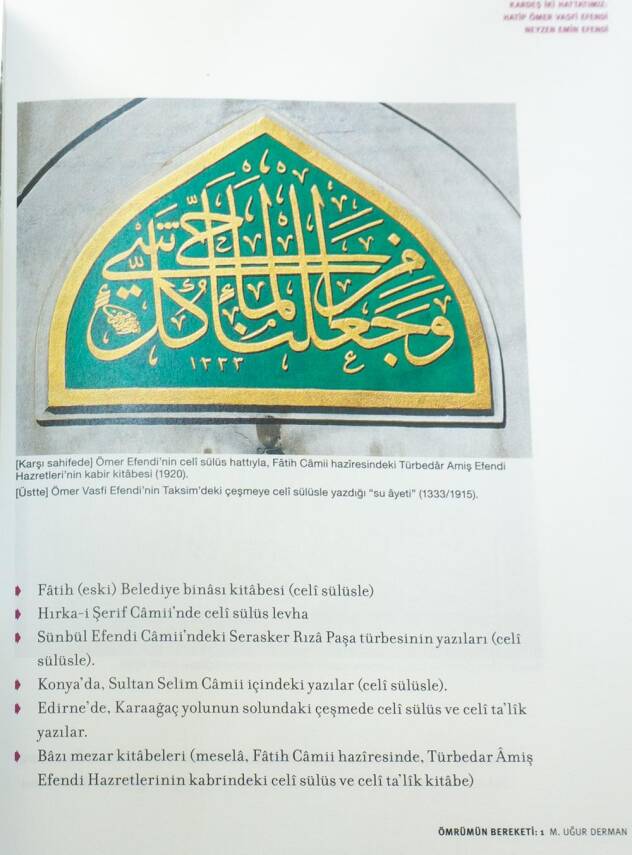 KARDEŞ İKİ HATTATIMIZ:
HATİP ÖMER VASFİ EFENDİ
NEYZEN EMİN EFENDİ
وجعلنا من الماء كل شئ حي
١٣٣٣
[Karşı sahifede] Ömer Efendi'nin celî sülüs hattıyla, Fâtih Câmii hazîresindeki Türbedâr Amiş Efendi
Hazretleri'nin kabir kitâbesi (1920).
[Üstte] Ömer Vasfi Efendi'nin Taksim'deki çeşmeye celî sülüsle yazdığı "su âyeti" (1333/1915).
Fâtih (eski) Belediye binâsı kitâbesi (celî sülüsle)
Hırka-i Şerif Câmii'nde celî sülüs levha
Sünbül Efendi Câmii'ndeki Serasker Rızâ Paşa türbesinin yazıları (celî
sülüsle).
Konya'da, Sultan Selim Câmii içindeki yazılar (celî sülüsle).
Edirne'de, Karaağaç yolunun solundaki çeşmede celî sülüs ve celî ta'lîk
yazılar.
Bâzı mezar kitâbeleri (meselâ, Fâtih Câmii hazîresinde, Türbedar Âmiş
Efendi Hazretlerinin kabrindeki celî sülüs ve celî ta'lîk kitâbe)
ÖMRÜMÜN BEREKETİ: 1 M. UĞUR DERMAN